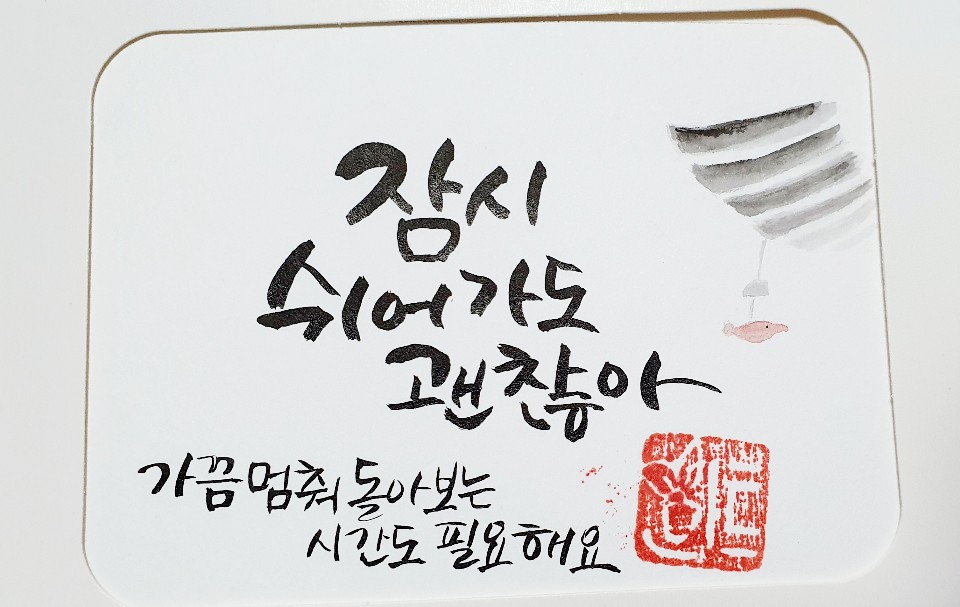 잠시
쉬어가도
괜찮아
가끔 멈춰 돌아보는
시간도 필요해요